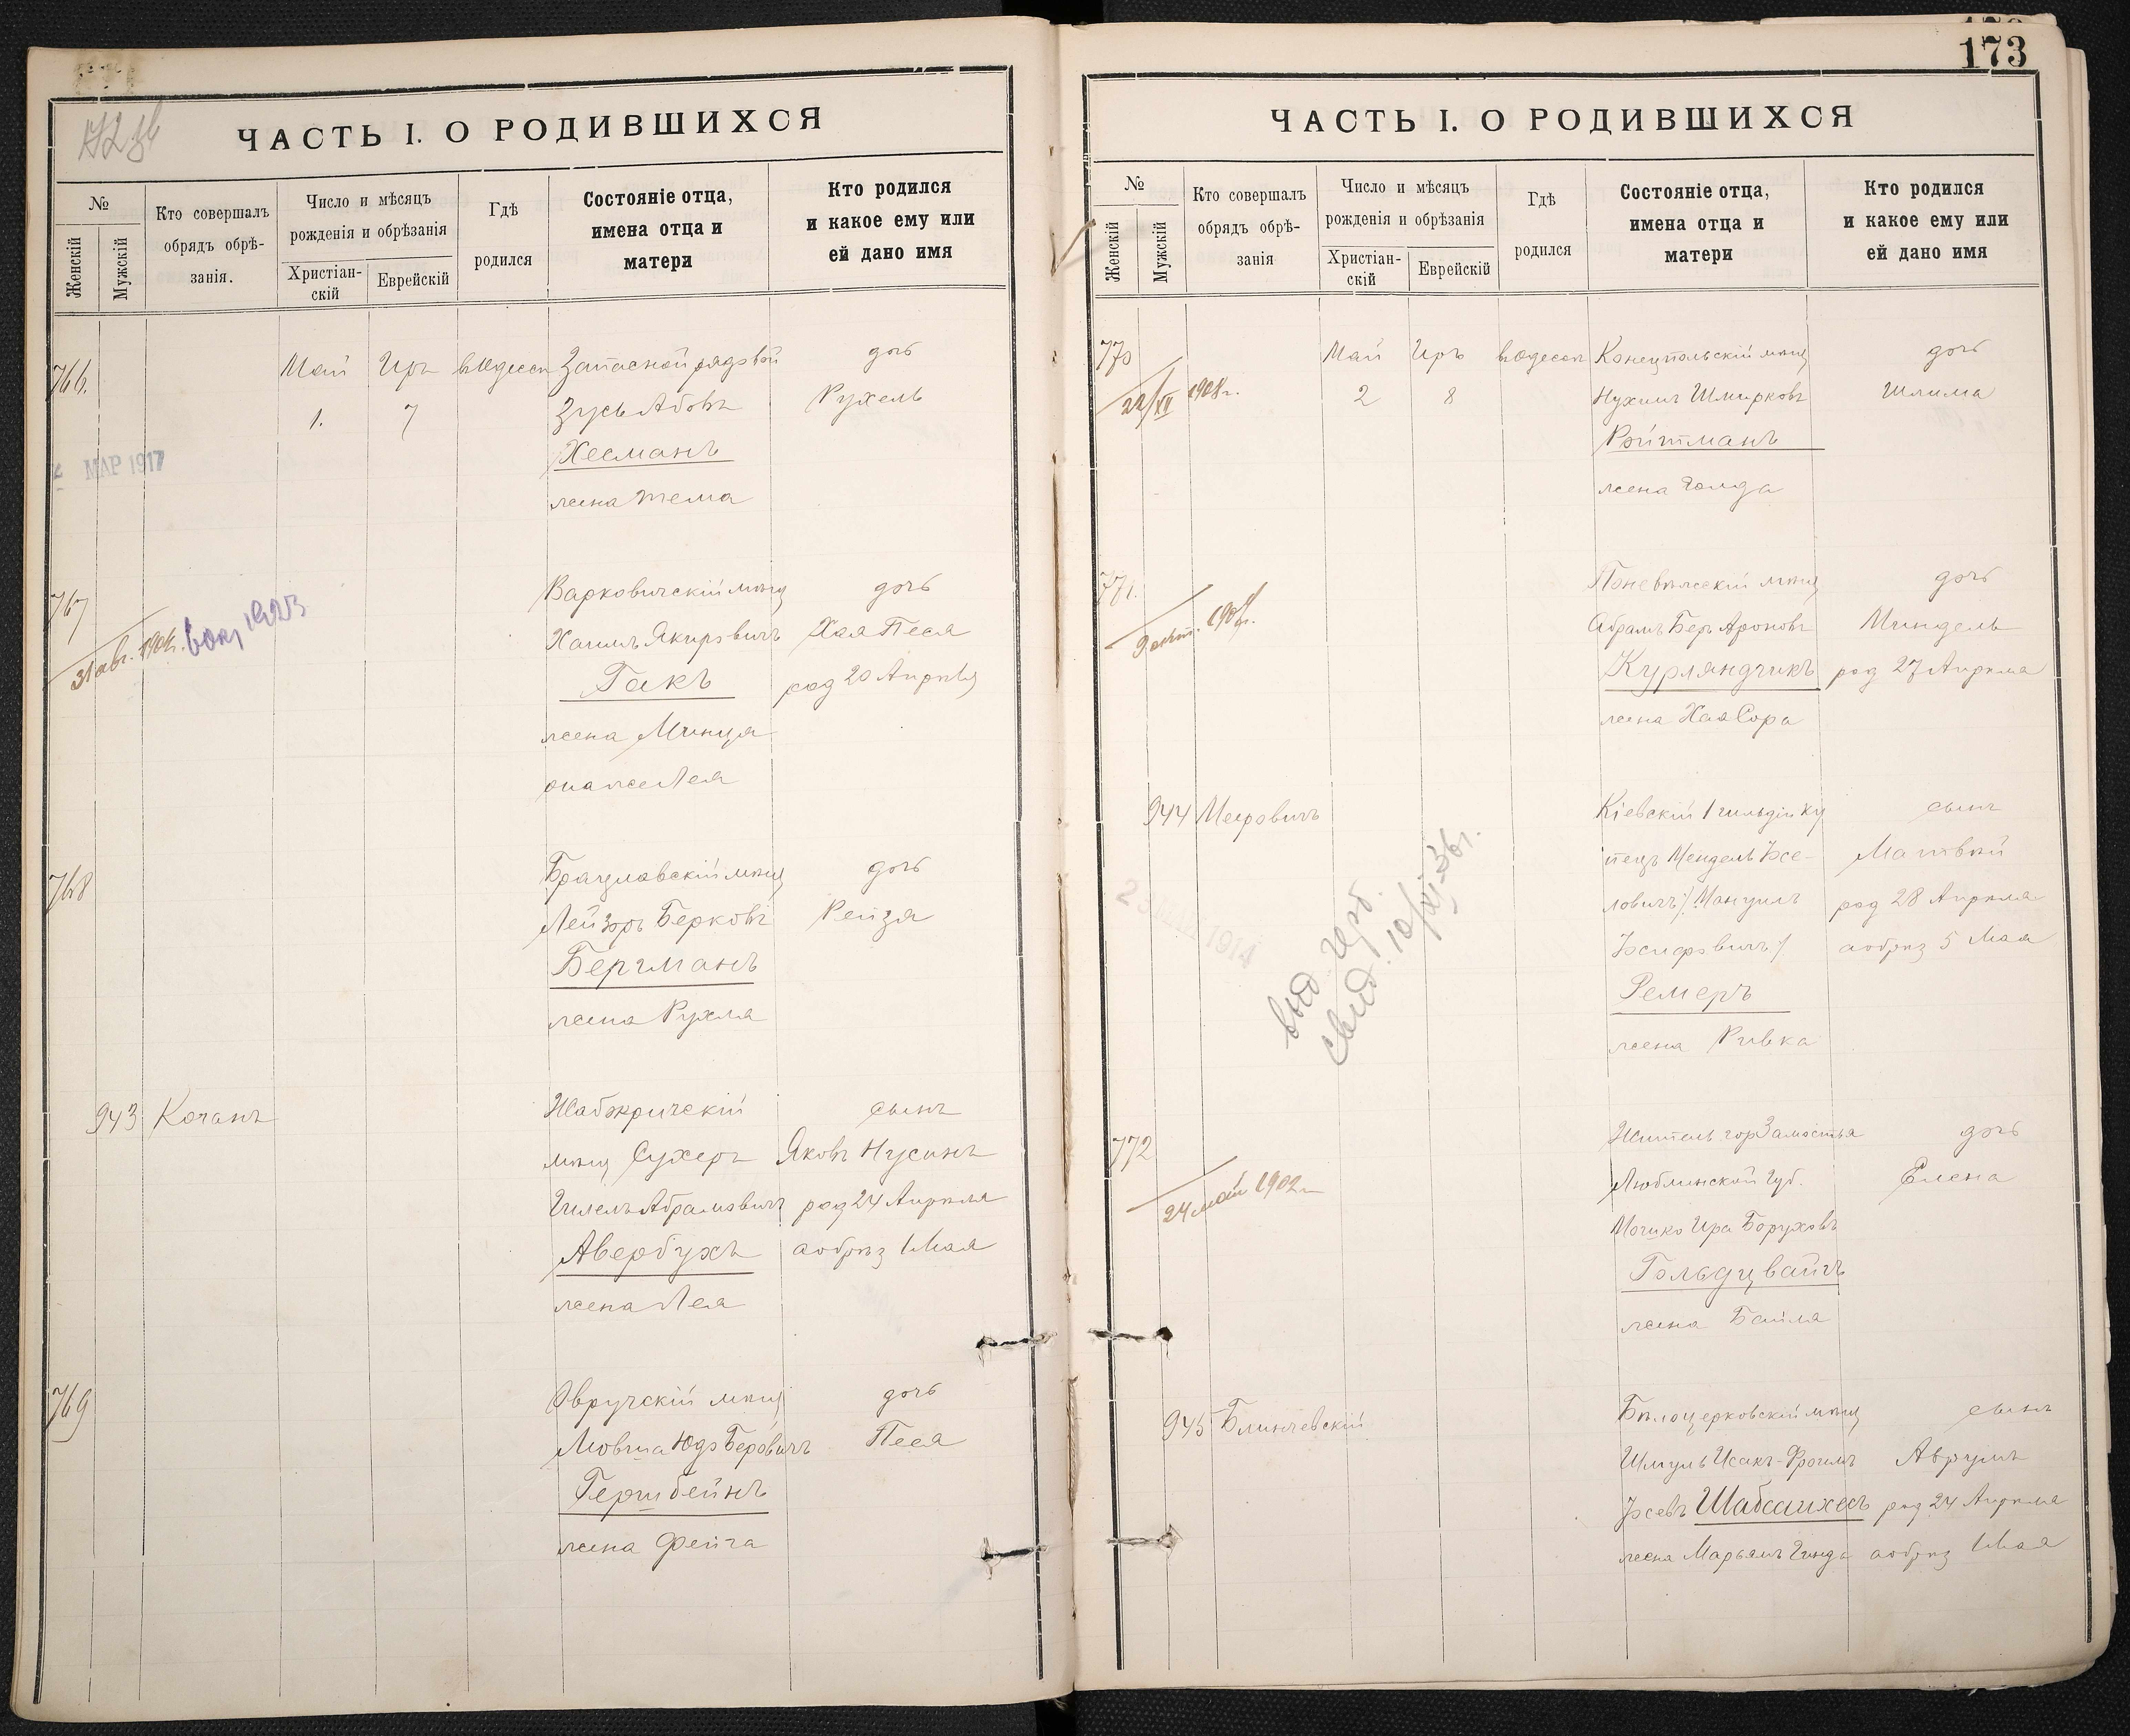 ЧАСТЬ I. О РОДИВШИХСЯ
№
Женскій
Мужскій
Кто совершалъ
обрядъ обрѣ-
занія.
Число и мѣсяцъ
рожденія и обрѣзанія
Христіан-
скій
Еврейскій
Гдѣ
родился
Состояніе отца,
имена отца и
матери
Кто родился
и какое ему или
ей дано имя
766.
МАР 1917
Май
1.
Иръ
7
въ Одессѣ
Запасной рядовой
Зусь Абовъ
Хесманъ
жена Тема
дочь
Рухель
767
31 авг. 1904.
1923
Варковичскій мѣщ
Хаимъ Якировичъ
Гакъ
жена Минця
она же Лея
дочь
Хая Песя
род 20 Апрѣля
768
Брацлавскій мѣщ
Лейзоръ Берковъ
Бергманъ
жена Рухля
дочь
Рейзя
943
Коганъ
Жабокричскій
мѣщ Сухеръ
Гилель Абрамовичъ
Авербухъ
жена Лея
сынъ
Яковъ Нусинъ
род 24 Апрѣля
а обрѣз 1 Мая
769
Овручскій мѣщ
Мовша Юдо Беровичъ
Герибейнъ
жена Фейга
дочь
Песя
173
ЧАСТЬ I. О РОДИВШИХСЯ
№
Женскій
Мужскій
Кто совершалъ
обрядъ обрѣ-
занія
Число и мѣсяцъ
рожденія и обрѣзанія
Христіан-
скій
Еврейскій
Гдѣ
родился
Состояніе отца,
имена отца и
матери
Кто родился
и какое ему или
ей дано имя
770
22/XII 1908 г.
Май
2
Иръ
8
въ Одессѣ
Конецпольскій мѣщ
Нухимъ Шмирковъ
Ройтманъ
жена Голда
дочь
Шлима
771.
Поневѣжскій мѣщ
Абрамъ Беръ Ароновъ
Курляндчикъ
жена Хая Сора
дочь
Миндель
род 27 Апрѣля
944
Меировичъ
1914
выд. герб.
свид. 10/XI-36 г.
Кіевскій 1 гильдіи ку
пецъ Мендель Іосе-
ловичъ /Мануилъ
Іосифовичъ/
Ремеръ
жена Ривка
сынъ
Матвѣй
род 28 Апрѣля
а обрѣз 5 Мая
772
24 май 1902 г.
Житель гор Замостья
Люблинской Губ.
Мошко Ира Боруховъ
Гольдцвайгъ
жена Бейла
дочь
Елена
945
Блинчевскій
Бѣлоцерковскій мѣщ
Шмуль Исакъ-Фроимъ
Іосевъ Шабсаихесъ
жена Марьямъ Гинда
сынъ
Аврумъ
род 24 Апрѣля
а обрѣз 1 Мая